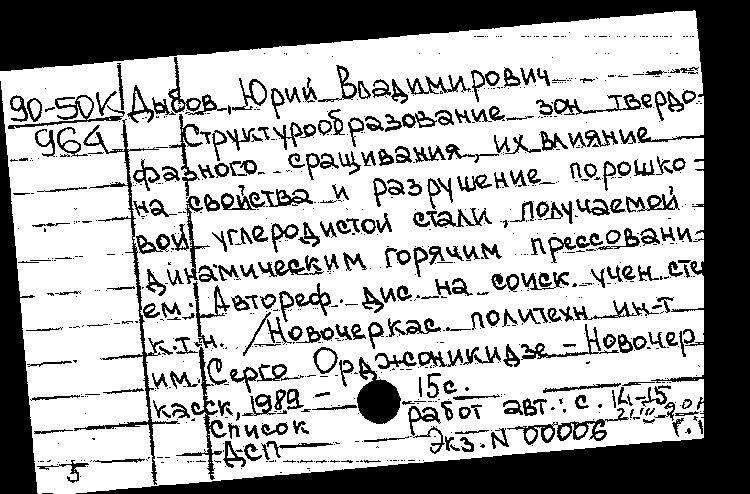 90-50К Дыбов, Юрий Владимирович
964 Структурообразование зон твердо-
фазного сращивания, их влияние
на свойства и разрушение порошко-
вой углеродистой стали, получаемой
динамическим горячим прессовани-
ем: Автореф. дис. на соиск. учен. сте
к.т.н. /Новочеркас. политехн. ин-т
им. Серго Орджоникидзе - Новочер
касск, 1989 - 15с.
Список работ авт.: с. 14-15
ДСП Экз. N 00006
5